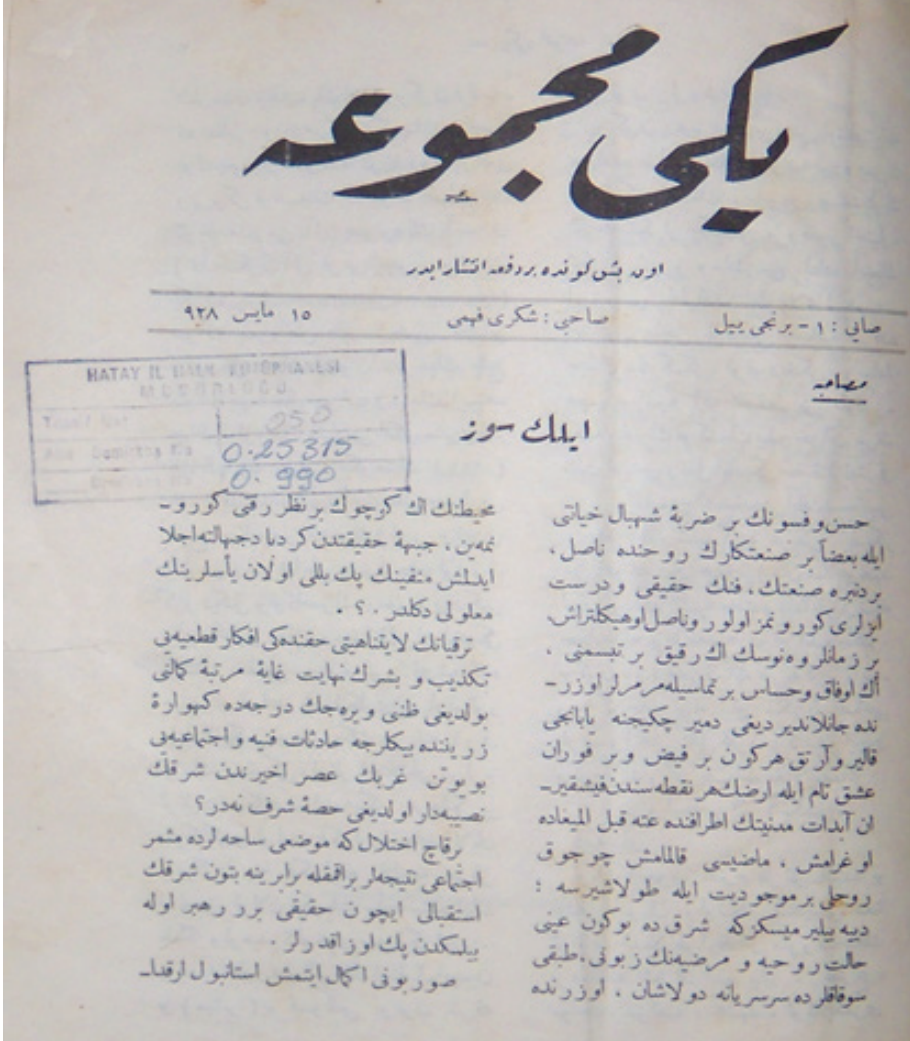 یكی مجموعه
اون بش كونده بر دفعه انتشار ایدر
صایی : ۱ - برنجی ییل
صاحبی : شكری فهمی
۱۵ مایس ۹۲۸
HATAY İL HALK KÜTÜPHANESİ
050
0.25315
0.990
مصاحبه
ایلك سوز
حسن و فسونك بر ضربهٔ شهبال خیاتی
ایله بعضاً بر صنعتكارك روحنده ناصل ،
بردنبره صنعتك ، فنك حقیقی و درست
ایزلری كورونمز اولور و ناصل او هیكلتراش،
بر زمانلر وه‌نوسك اك رقیق بر تبسمنی ،
اك اوفاق و حساس بر تماسیله مرمرلر اوزر-
نده جانلاندیردیغی دمیر چكیجنه یابانجی
قالیر و آرتق هركون بر فیض و بر فوران
عشق تام ایله ارضك هر نقطه‌سندن فیشقیر-
ان آبدات مدنیتك اطرافنده عته قبل المیعاده
اوغرامش ، ماضیسی قالمامش چوجوق
روحلی بر موجودیت ایله طولاشیرسه ؛
دییه بیلیر میسكز كه شرق ده بوكون عینی
حالت روحیه و مرضیه‌نك زبونی ، طبقی
سوقاقلرده سرسریانه دولاشان ، اوزرنده
محیطنك اك كوچوك بر نظر رقتی كورو-
نمه‌ین ، جبههٔ حقیقتدن كرداب جهالته اجلا
ایدلمش منفینك پك بللی اولان یأسلرینك
معلولی دكلدر . ؟ .
ترقیاتك لایتناهیتی حقنده‌كی افكار قطعیه‌یی
تكذیب و بشرك نهایت غایهٔ مرتبهٔ كمالنی
بولدیغی ظننی ویره‌جك درجه‌ده كهوارهٔ
زرینده بیكلرجه حادثات فنیه و اجتماعیه‌یی
بویوتن غربك عصر اخیرندن شرقك
نصیبه‌دار اولدیغی حصهٔ شرف نه‌در؟
برقاچ اختلال كه موضعی ساحه‌لرده مثمر
اجتماعی نتیجه‌لر براقمقله برابر ینه بتون شرقك
استقبالی ایچون حقیقی برر رهبر اوله
بیلمكدن پك اوزاقدرلر .
صوربونی اكمال ایتمش استانبول ارقدا-